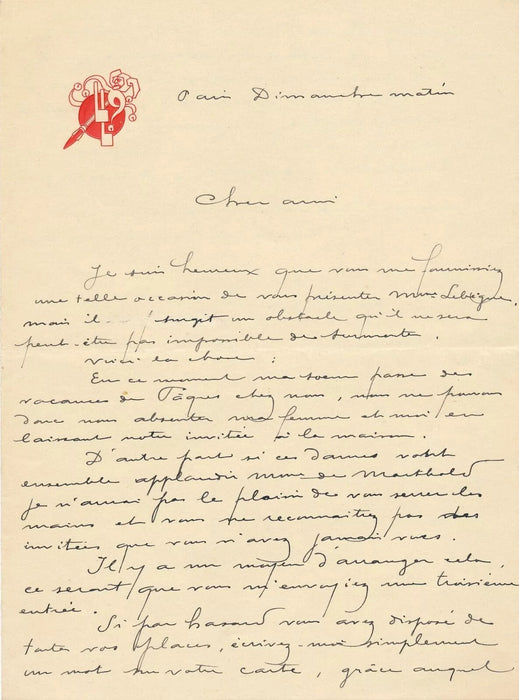 Paris Dimanche matin
Cher ami
Je suis heureux que vous me fournissiez
une telle occasion de vous présenter Mme Lebègue,
mais il surgit un obstacle qu'il ne sera
peut-être pas impossible de surmonter.
Voici la chose :
En ce moment ma soeur passe des
vacances de Pâques chez nous, nous ne pouvons
donc nous absenter ma femme et moi en
laissant notre invitée à la maison.
D'autre part si ces dames vont
ensemble applaudir Mme de Marthold
je n'aurai pas le plaisir de vous serrer les
mains et vous ne reconnaitrez pas des
invitées que vous n'avez jamais vues.
Il y a un moyen d'arranger cela,
ce serait que vous m'envoyiez une troisième
entrée.
Si par hasard vous avez disposé de
toutes vos places, écrivez-moi simplement
un mot sur votre carte, grâce auquel